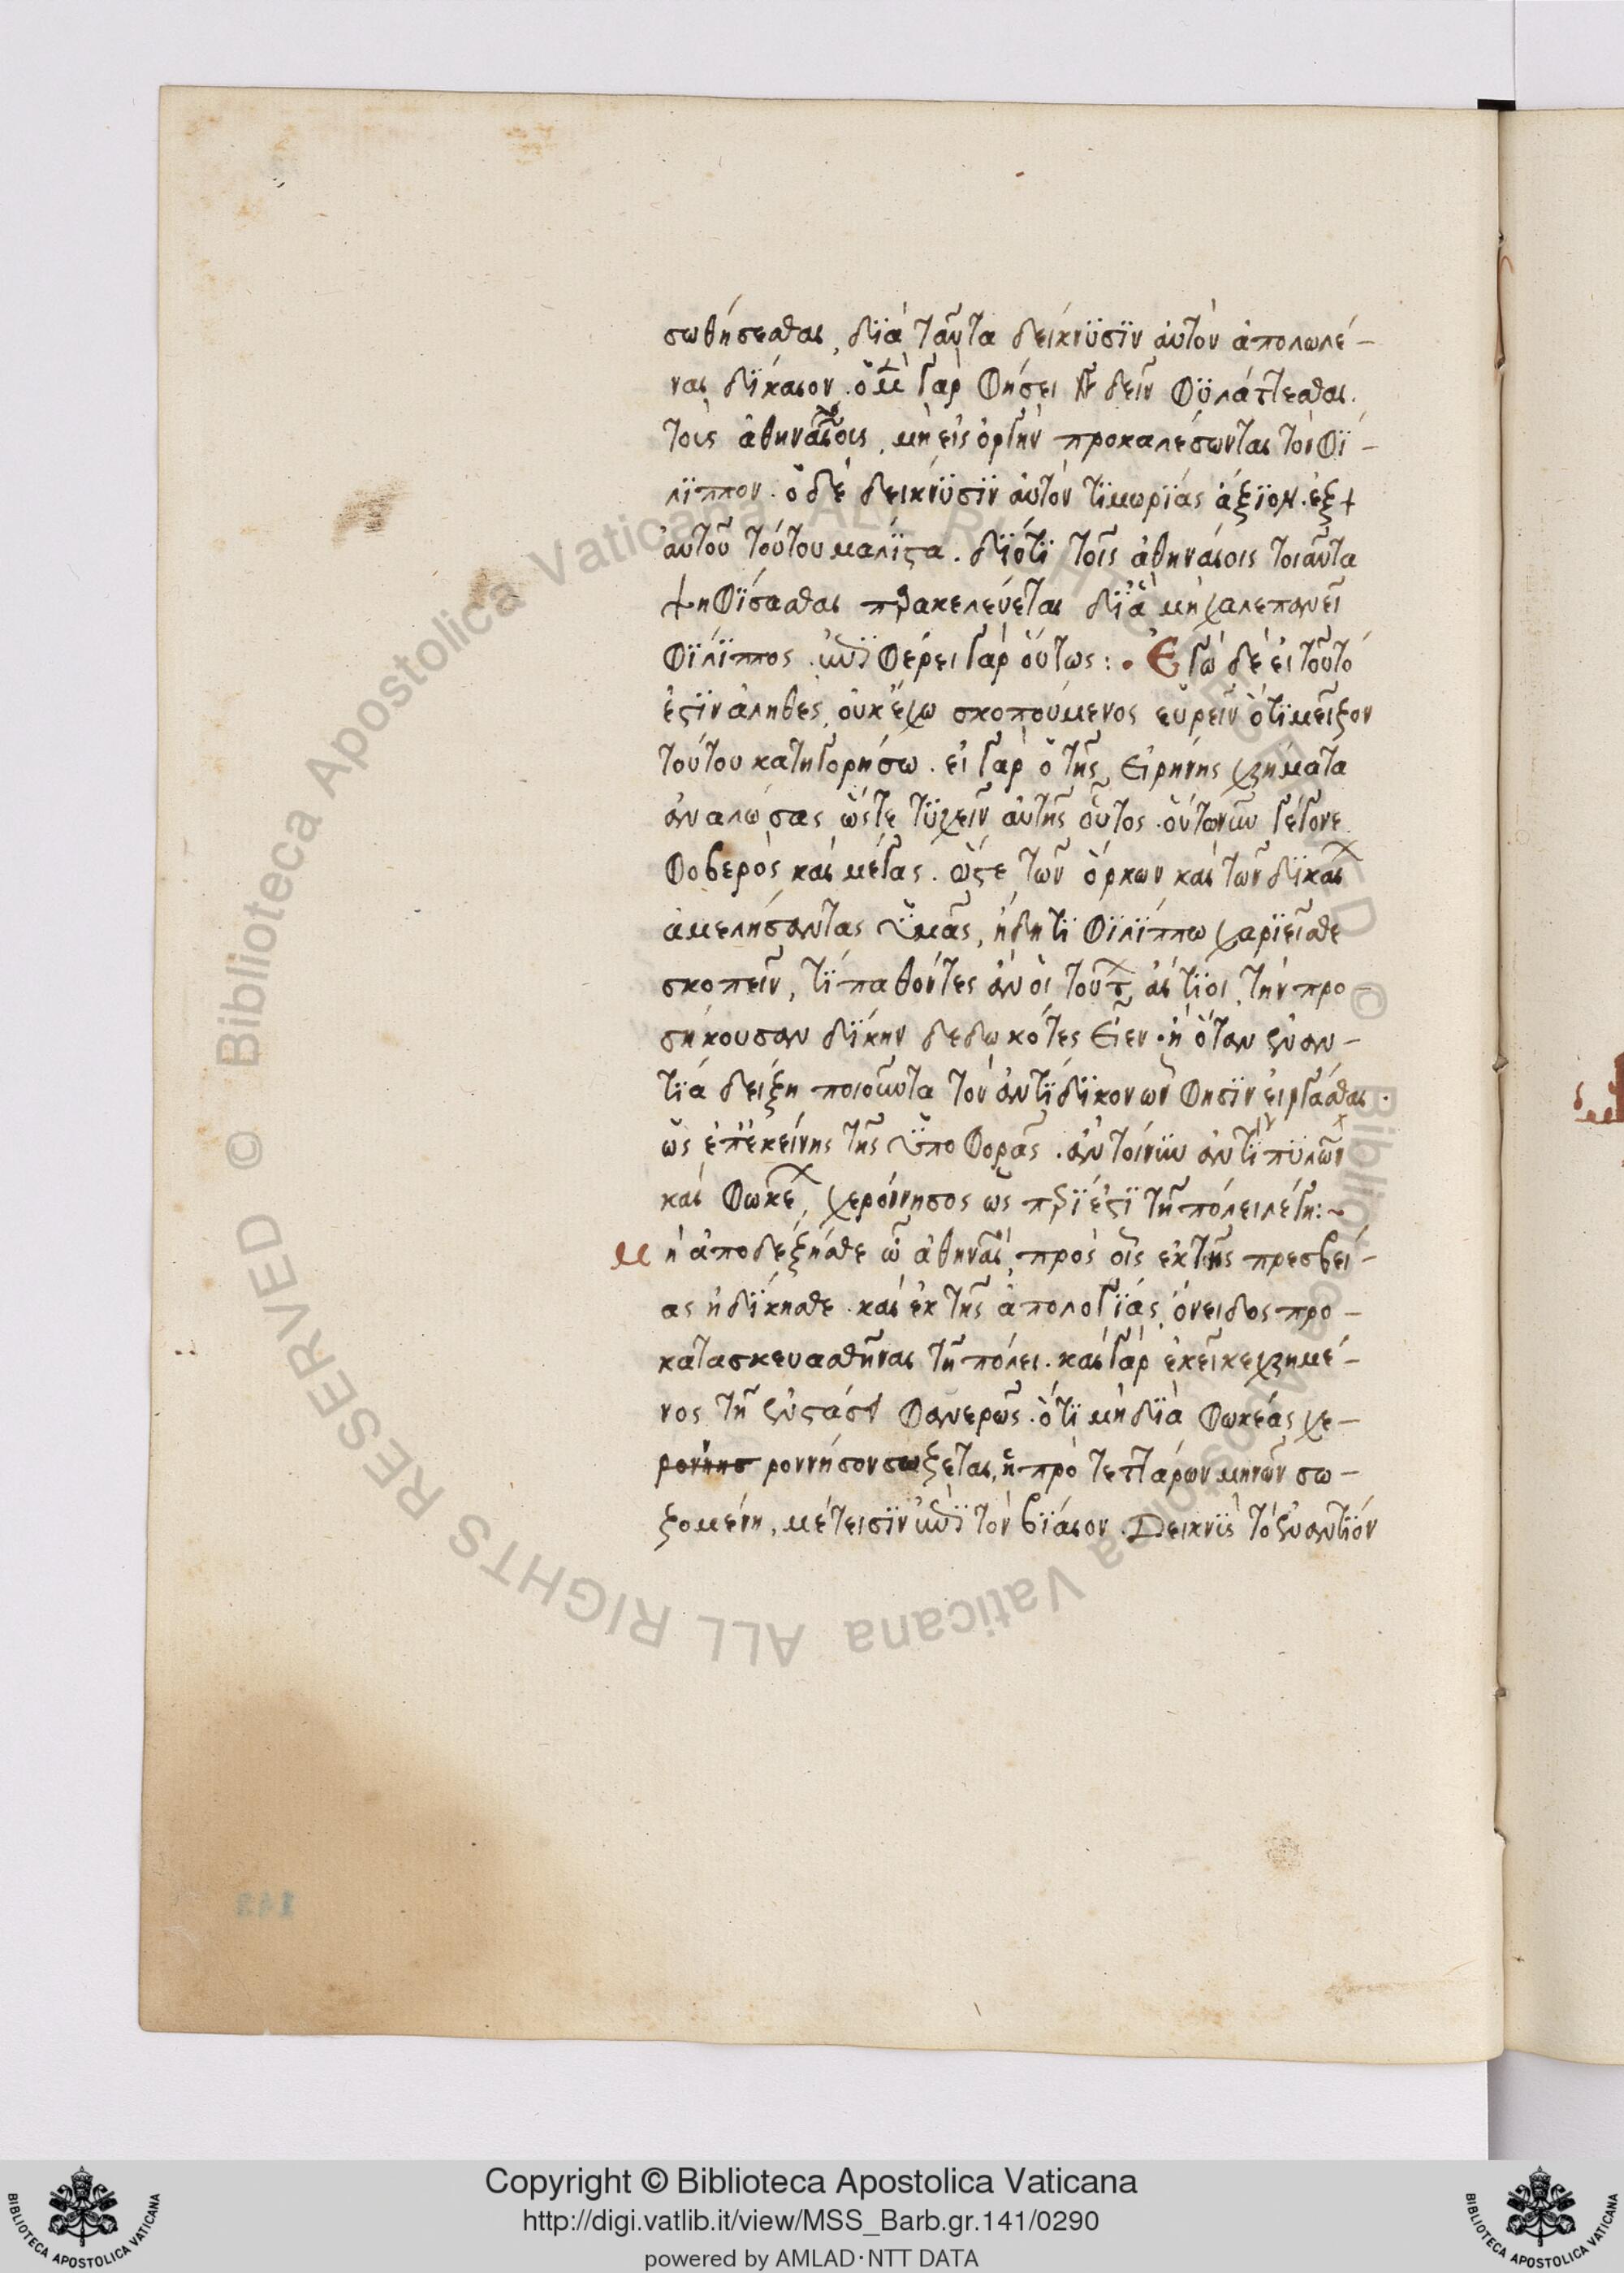 σωθήσεσθαι, δϊὰ ταῦτα δείκνϋσϊν αὐτὸν ἀπολωλέ-
ναι δϊκαιον. ὁ μὲν γὰρ φήσει δεῖν φϋλάττεσθαι.
τοὺς ἀθηναίους, μὴ εἰς ὀργὴν προκαλέσωνται τὸν φϊ-
λϊππον. ὁ δὲ δεικνϋσϊν αὐτὸν τϊμωρϊας ἄξϊον. ἐξ
αὐτοῦ τούτου μαλϊστα. δϊότϊ τοῖς ἀθηναίοις τοιαῦτα
ψηφϊσασθαι παρακελεύεται δϊ ἃ μὴ χαλεπανεῖ
φϊλϊππος. καὶ φέρει γὰρ οὕτως: . Ἐγὼ δὲ εἰ τοῦτό
ἐστϊν ἀληθες, οὐκ ἔχω σκοπούμενος εὑρεῖν ὅτϊ μεῖζον
τούτου κατηγορήσω. εἰ γὰρ ὁ τῆς εἰρήνης χρήματα
ἀναλώσας, ὥστε τϋχεῖν αὐτῆς οὗτος. οὕτω νῦν γέγονε
φοβερὸς καὶ μέγας. ὥστε τῶν ὅρκων καὶ τῶν δϊκαι
ἀμελήσαντας ϋμᾶς, ἤδη τϊ φϊλϊππω χαρϊεῖσθε
σκοπεῖν, τϊ παθόντες ἂν οἱ τούτ αἴτϊοι, τὴν προ-
σήκουσαν δϊκην δεδωκότες εἶεν. ἢ ὅταν ἐναν-
τϊα δείξη ποιοῦντα τὸν ἀντϊδϊκον ὧν φησϊν εἰργάσθαι.
ὡς ἐπ' ἐκείνης τῆς ϋποφορᾶς. ἂν τοίνϋν ἀντϊ πϋλῶν
καὶ φωκε, χερόννησος ὡς περϊεστϊ τῆ πόλει λέγη:~
Μὴ ἀποδέξησθε ὦ ἀθηναῖ, πρὸς οἷς ἐκ τῆς πρεσβεί-
ας ἠδϊκησθε. καὶ ἐκ τῆς ἀπολογϊας, ὄνειδος προ-
κατασκευασθῆναι τῆ πόλει. καὶ γὰρ ἐκεῖ κεχρημέ-
νος τῆ ἐνστάσει φανερῶς. ὅτϊ μὴ δϊὰ φωκέας χε-
ρονήσ ροννήσον σώζεται, ἢ πρὸ τεττάρων μηνῶν σω-
ζομένη, μέτεισϊν καὶ τὸν βϊαιον. Δεικνϋς τὸ ἐναντϊον
142
Copyright © Biblioteca Apostolica Vaticana
http://digi.vatlib.it/view/MSS_Barb.gr.141/0290
powered by AMLAD·NTT DATA
BIBLIOTECA APOSTOLICA VATICANA
BIBLIOTECA APOSTOLICA VATICANA
© Biblioteca Apostolica Vaticana ALL RIGHTS RESERVED
© Biblioteca Apostolica Vaticana ALL RIGHTS RESERVED